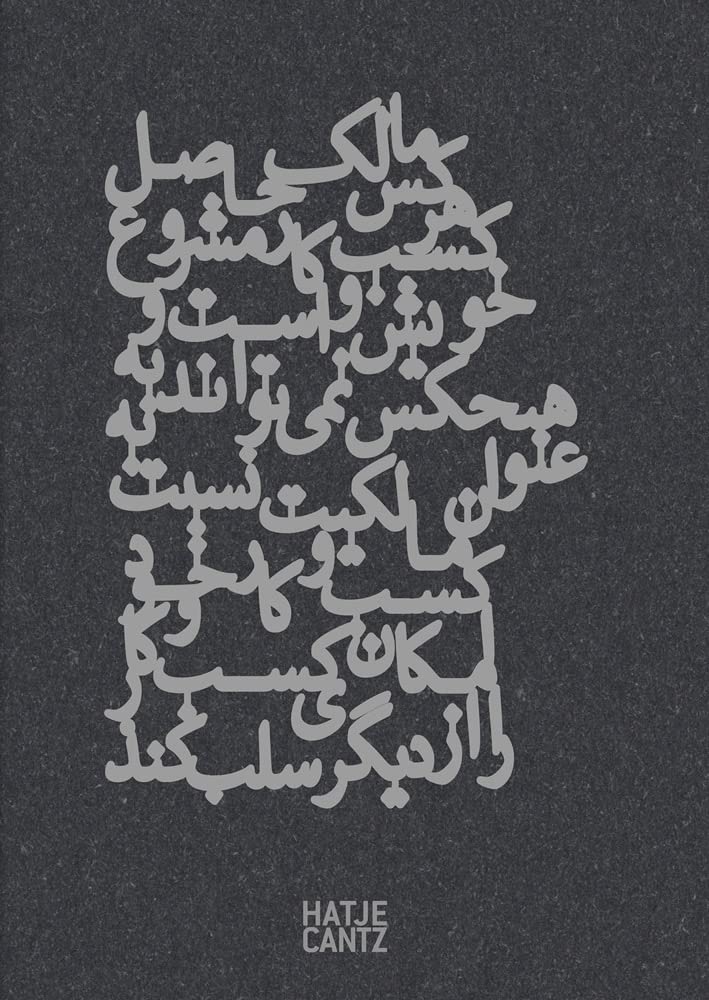 هر کس مالک حاصل
کسب و کار مشروع
خویش است و
هیچکس نمی‌تواند به
عنوان مالکیت نسبت به
کسب و کار خود
امکان کسب و کار
را از دیگری سلب کند
HATJE
CANTZ